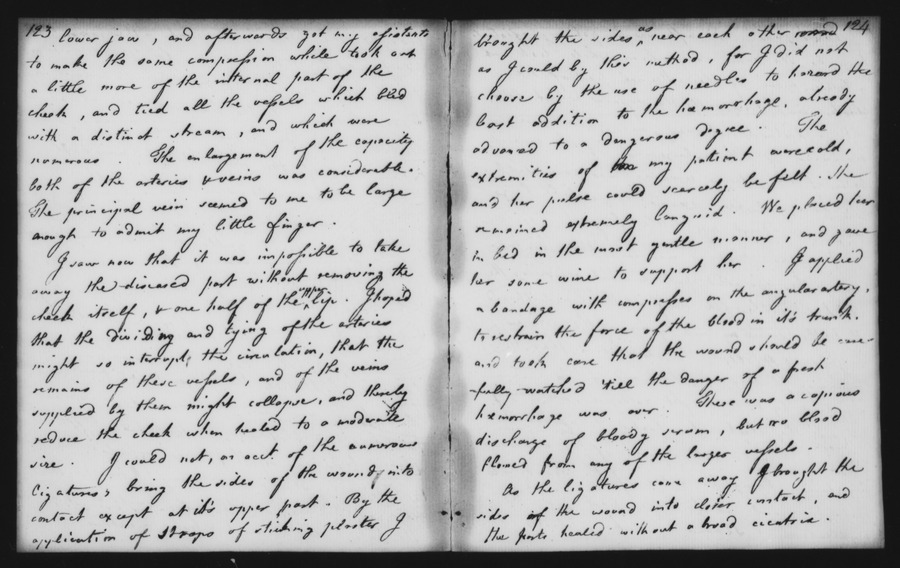 123
lower jaw, and afterwards got my assistants
to make the same compression while I took out
a little more of the internal part of the
cheek, and tied all the vessels which bled
with a distinct stream, and which were
numerous. The enlargement of the capacity
both of the arteries & veins was considerable.
The principal vein seemed to me to be large
enough to admit my little finger.
I saw now that it was impossible to take
away the diseased part without removing the
cheek itself, & one half of the upper lip. I hoped
that the dividing and tying of the arteries
might so interrupt the circulation, that the
remains of these vessels, and of the veins
supplied by them might collapse, and thereby
reduce the cheek when healed to a moderate
size. I could not, on acct. of the numerous
ligatures, bring the sides of the wound into
contact except at it's upper part. By the
application of straps of sticking plaster I
124
brought the sides as near each other
as I could by this method, for I did not
choose by the use of needles to hazard the
least addition to the hæmorrhage, already
advanced to a dangerous degree. The
extremities of my patient were cold,
and her pulse could scarcely be felt. She
remained extremely languid. We placed her
in bed in the most gentle manner, and gave
her some wine to support her. I applied
a bandage with compresses on the angular artery,
to restrain the force of the blood in it's trunk.
and took care that the wound should be care-
fully watched 'till the danger of a fresh
hæmorrhage was over. There was a copious
discharge of bloody serum, but no blood
flowed from any of the larger vessels.
As the ligatures came away I brought the
sides of the wound into closer contact, and
the parts healed without a broad cicatrix.